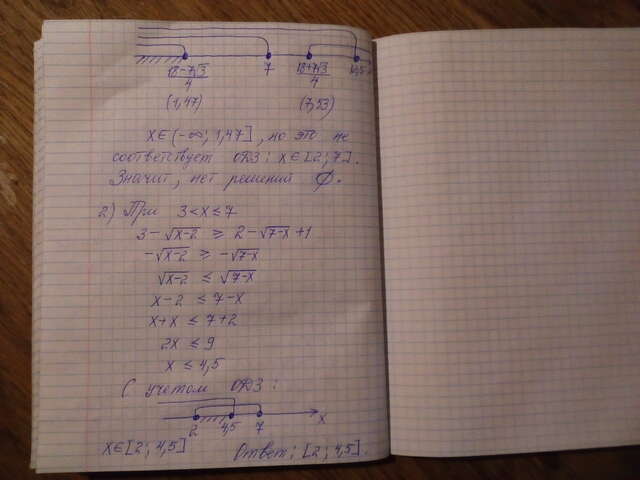 18-7√3/4 7 18+7√3/4 4,5
(1,47) (7,53)
X∈(-∞; 1,47], но это не
соответствует ОДЗ: X∈[2; 7].
Значит, нет решений Ø.
2) При 3<x≤7
3-√x-2 ≥ 2-√7-x+1
-√x-2 ≥ -√7-x
√x-2 ≤ √7-x
x-2 ≤ 7-x
x+x ≤ 7+2
2x ≤ 9
x ≤ 4,5
С учетом ОДЗ:
2 4,5 7 x
X∈[2; 4,5] Ответ: [2; 4,5].